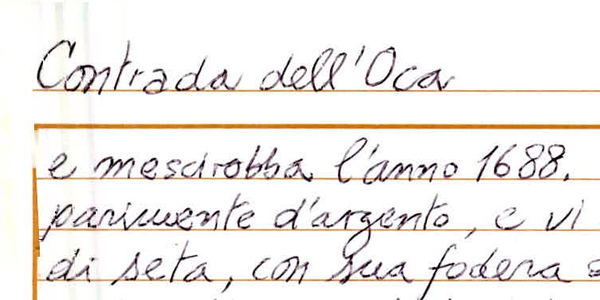 Contrada dell'Oca
e mescirobba l'anno 1688.
parimente d'argento, e vi
di seta, con sua fodera